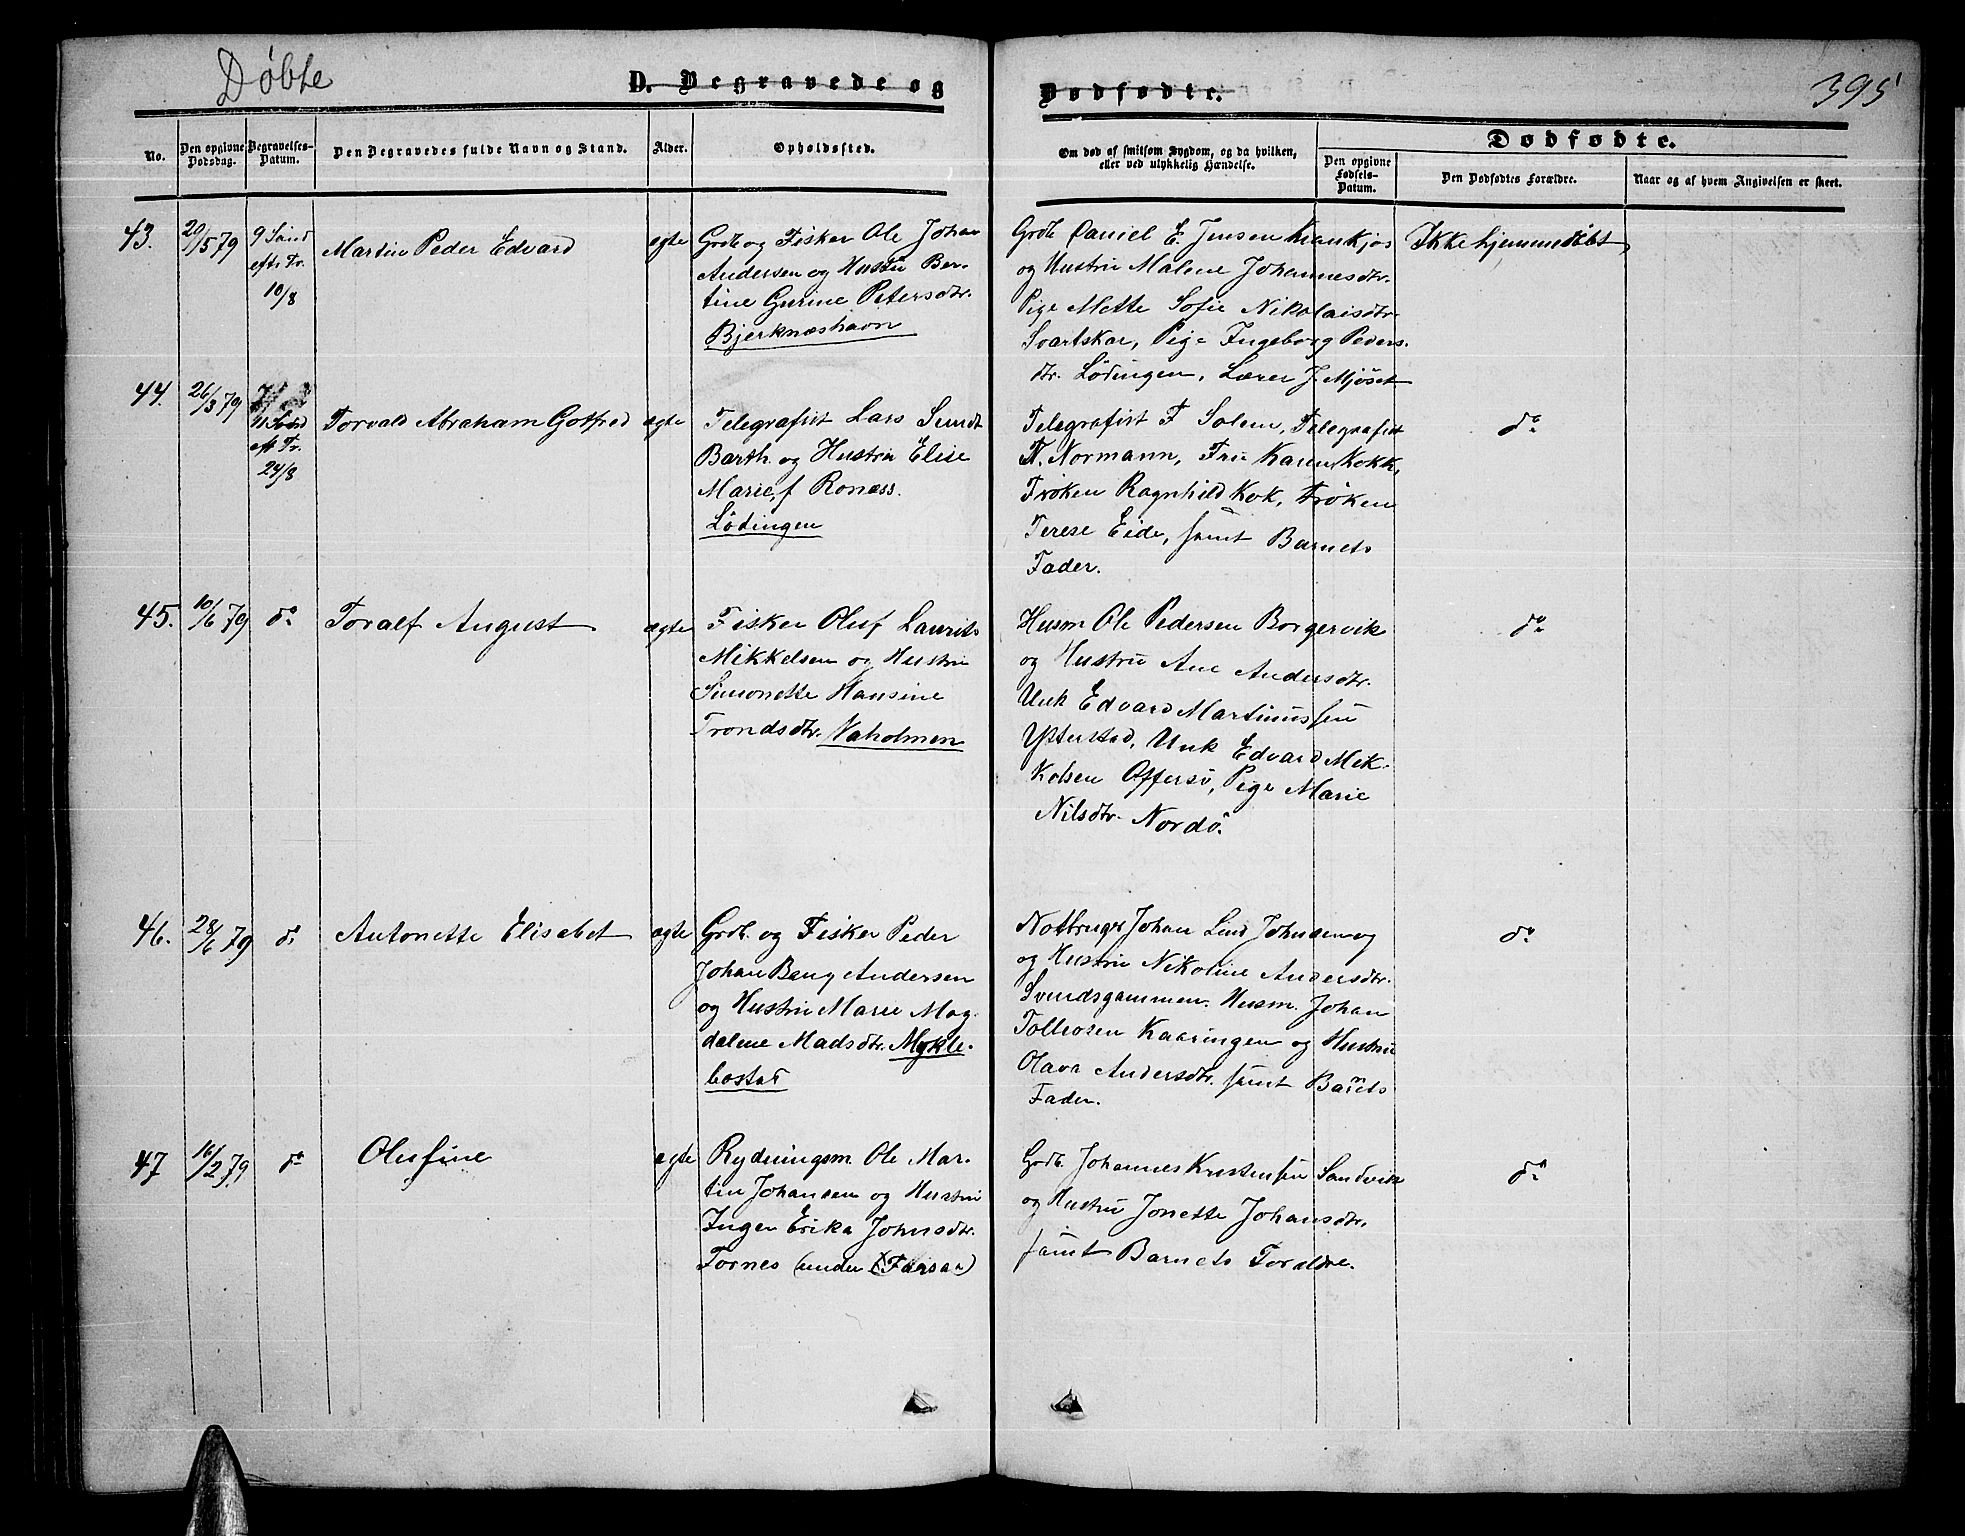 Døbte
D. Begravede og
Dødfødte.
395
No.
Den opgivne Dødsdag.
Begravelses-Datum.
Den Begravedes fulde Navn og Stand.
Alder.
Opholdssted.
Om død af smitsom Sygdom, og da hvilken,
eller ved ulykkelig Hændelse.
Dødfødte.
Den opgivne Fødsels-Datum.
Den Dødfødtes Forældre.
Naar og af hvem Angivelsen er skeet.
43.
20/5 79
9 Sønd
eftr Tr.
10/8
Martin Peder Edvard
ægte
Grdb og Fisker Ole Johan
Andersen og Hustru Ber-
tine Gurine Petersdtr.
Bjerknæshavn
Grdb Daniel E. Jensen Kvankjos
og Hustru Malene Johannesdtr.
Pige Mette Sofie Nikolaisdtr
Svartskar, Pige Ingeborg Peders-
dtr. Lödingen, Lærer J. Mjöset
Ikke hjemmedöbt
44.
26/3 79
11 Sönd
eft Tr.
24/8
Torvald Abraham Gotfred
ægte
Telegrafist Lars Sundt
Barth og Hustru Elise
Marie, f Ronæss.
Lödingen
Telegrafist F Solem, Telegrafist
N. Normann, Fru Karen Kokk,
Fröken Ragnhild Kok, Fröken
Terese Eide, samt Barnets
Fader.
do
45.
10/6 79
do
Toralf August
ægte
Fisker Oluf Laurits
Mikkelsen og Hustru
Simonette Hansine
Trondsdtr. Vaholmen
Husm Ole Pedersen Borgervik
og Hustru Ane Andersdtr.
Unk Edvard Martinussen
Ytterstad, Unk Edvard Mik-
kelsen Offersö, Pige Marie
Nilsdtr. Nordö.
do
46.
28/6 79
do
Antonette Elisabet
ægte
Grdb. og Fisker Peder
Johan Bang Andersen
og Hustru Marie Mag-
dalene Madsdtr. Mykle-
bostad
Notbruger Johan Lind Johnsen og
og Hustru Nikoline Andersdtr.
Svendsgammen. Husm. Johan
Tollevsen Kaaringen og Hustru
Olava Andersdtr. samt Barnets
Fader.
do
47
16/2 79
do
Olufine
ægte
Rydningsm. Ole Mar-
tin Johansen og Hustru
Inger Erika Johnsdtr.
Tornes (under Forsaa)
Grdb. Johannes Kristensen Sandvik
og Hustru Jonette Johansdtr.
samt Barnets Foreldre.
do